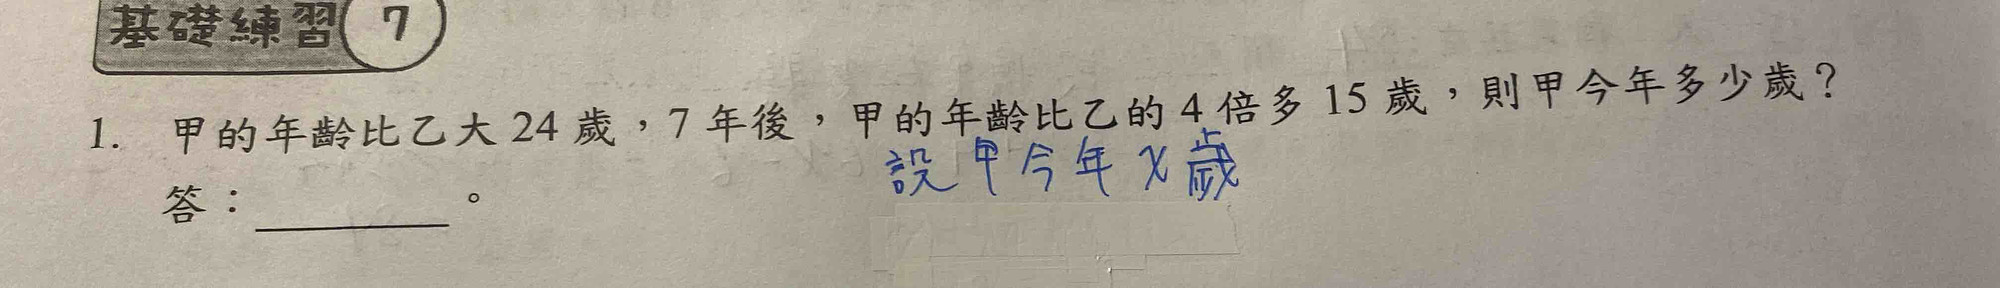 基礎練習 7
1. 甲的年齡比乙大 24 歲，7 年後，甲的年齡比乙的 4 倍多 15 歲，則甲今年多少歲？
設甲今年 x 歲
答：________。